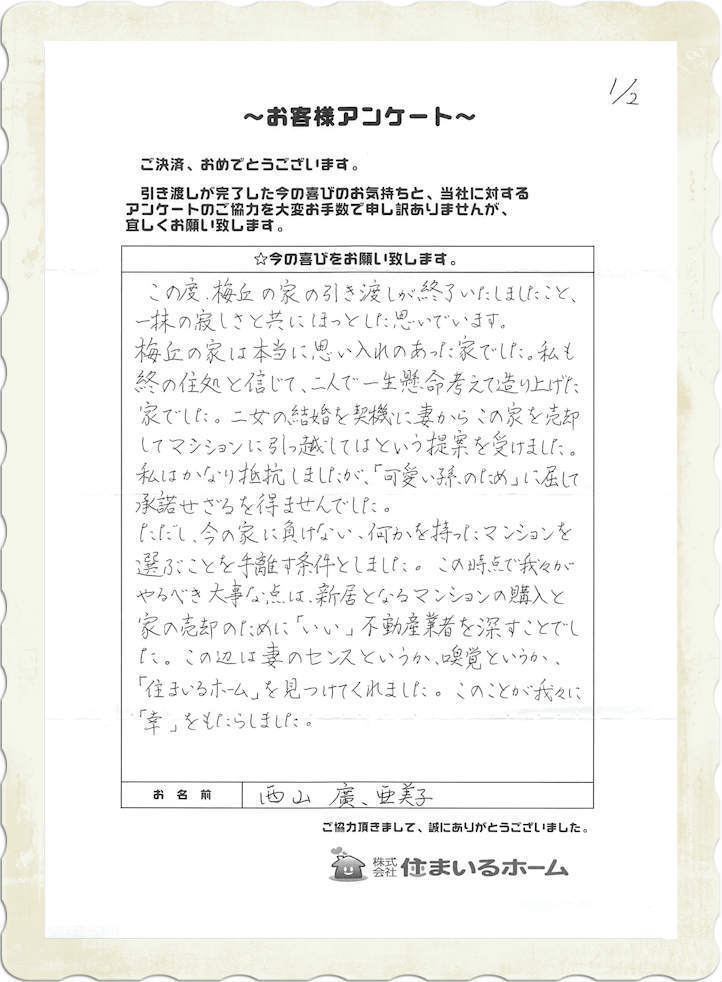 1/2
～お客様アンケート～
ご決済、おめでとうございます。
引き渡しが完了した今の喜びのお気持ちと、当社に対する
アンケートのご協力を大変お手数で申し訳ありませんが、
宜しくお願い致します。
☆今の喜びをお願い致します。
この度、梅丘の家の引き渡しが終了いたしましたこと、
一抹の寂しさと共にほっとした思いでいます。
梅丘の家は本当に思い入れのあった家でした。私も
終の住処と信じて、二人で一生懸命考えて造り上げた
家でした。二女の結婚を契機に妻からこの家を売却
してマンションに引っ越してはという提案を受けました。
私はかなり抵抗しましたが、「可愛い孫のため」に屈して
承諾せざるを得ませんでした。
ただし、今の家に負けない、何かを持ったマンションを
選ぶことを手離す条件としました。この時点で我々が
やるべき大事な点は、新居となるマンションの購入と
家の売却のために「いい」不動産業者を探すことでし
た。この辺は妻のセンスというか、嗅覚というか、
「住まいるホーム」を見つけてくれました。このことが我々に
「幸」をもたらしました。
お名前 西山 廣、亜美子
ご協力頂きまして、誠にありがとうございました。
株式会社 住まいるホーム